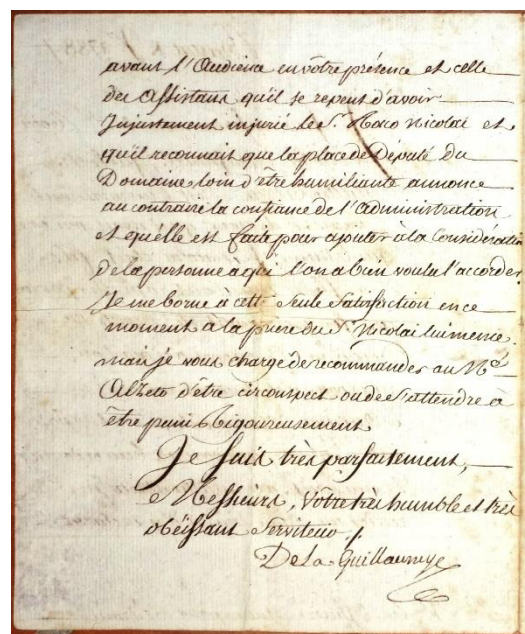 avant l'Audience en vôtre présence et celle
des Assistans qu'il se repent d'avoir
Injustement injurié le S.r Maco Nicolaï et
qu'il reconnait que la place de Député du
Domaine, loin d'être humiliante annonce
au contraire la confiance de l'administration
et qu'elle est faite pour ajouter à la Considération
de la personne à qui l'on a bien voulu l'accorder.
Je me borne à cette Seule Satisfaction en ce
moment a la priere du S.r Nicolaï lui meme,
mais je vous charge de recommander au N.é
d'être circonspect ou de s'attendre à
être puni Rigoureusement.
Je suis très parfaitement,
Messieurs, Vôtre très humble et très
obéïssant Serviteur
De la Guillaumye